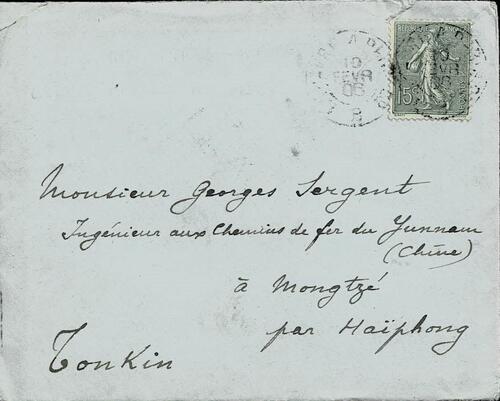 10
FEVR
06
15
Monsieur Georges Sergent
Ingénieur aux Chemins de fer du Yunnam
(Chine)
à Mongtzé
par Haïphong
Tonkin